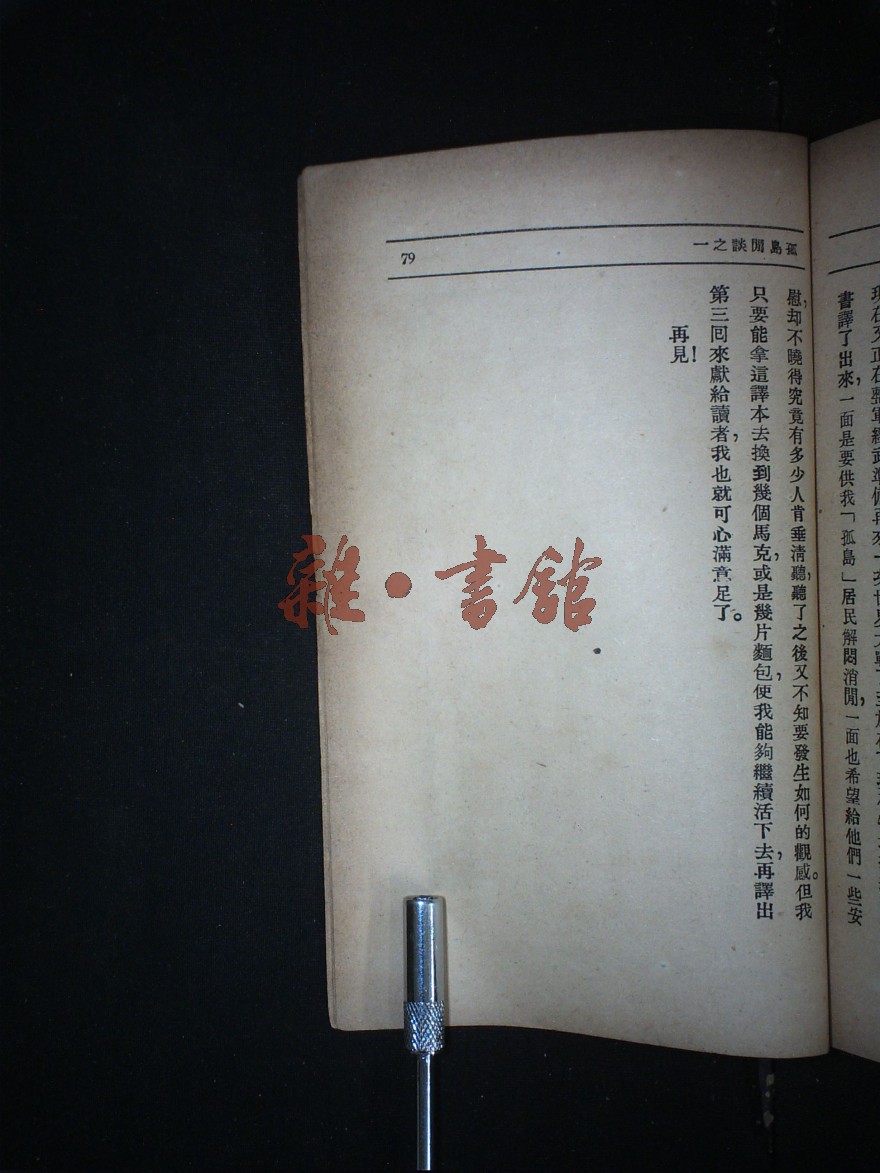 書譯了出來,一面是要供我「孤島」居民解悶消閒,一面也希望給他們一些安
孤島閒談之一
79
慰,却不曉得究竟有多少人肯垂淸聽,聽了之後又不知要發生如何的觀感。但我
只要能拿這譯本去換到幾個馬克,或是幾片麵包,使我能夠繼續活下去,再譯出
第三回來獻給讀者,我也就可心滿意足了。
再見!
雜·書館